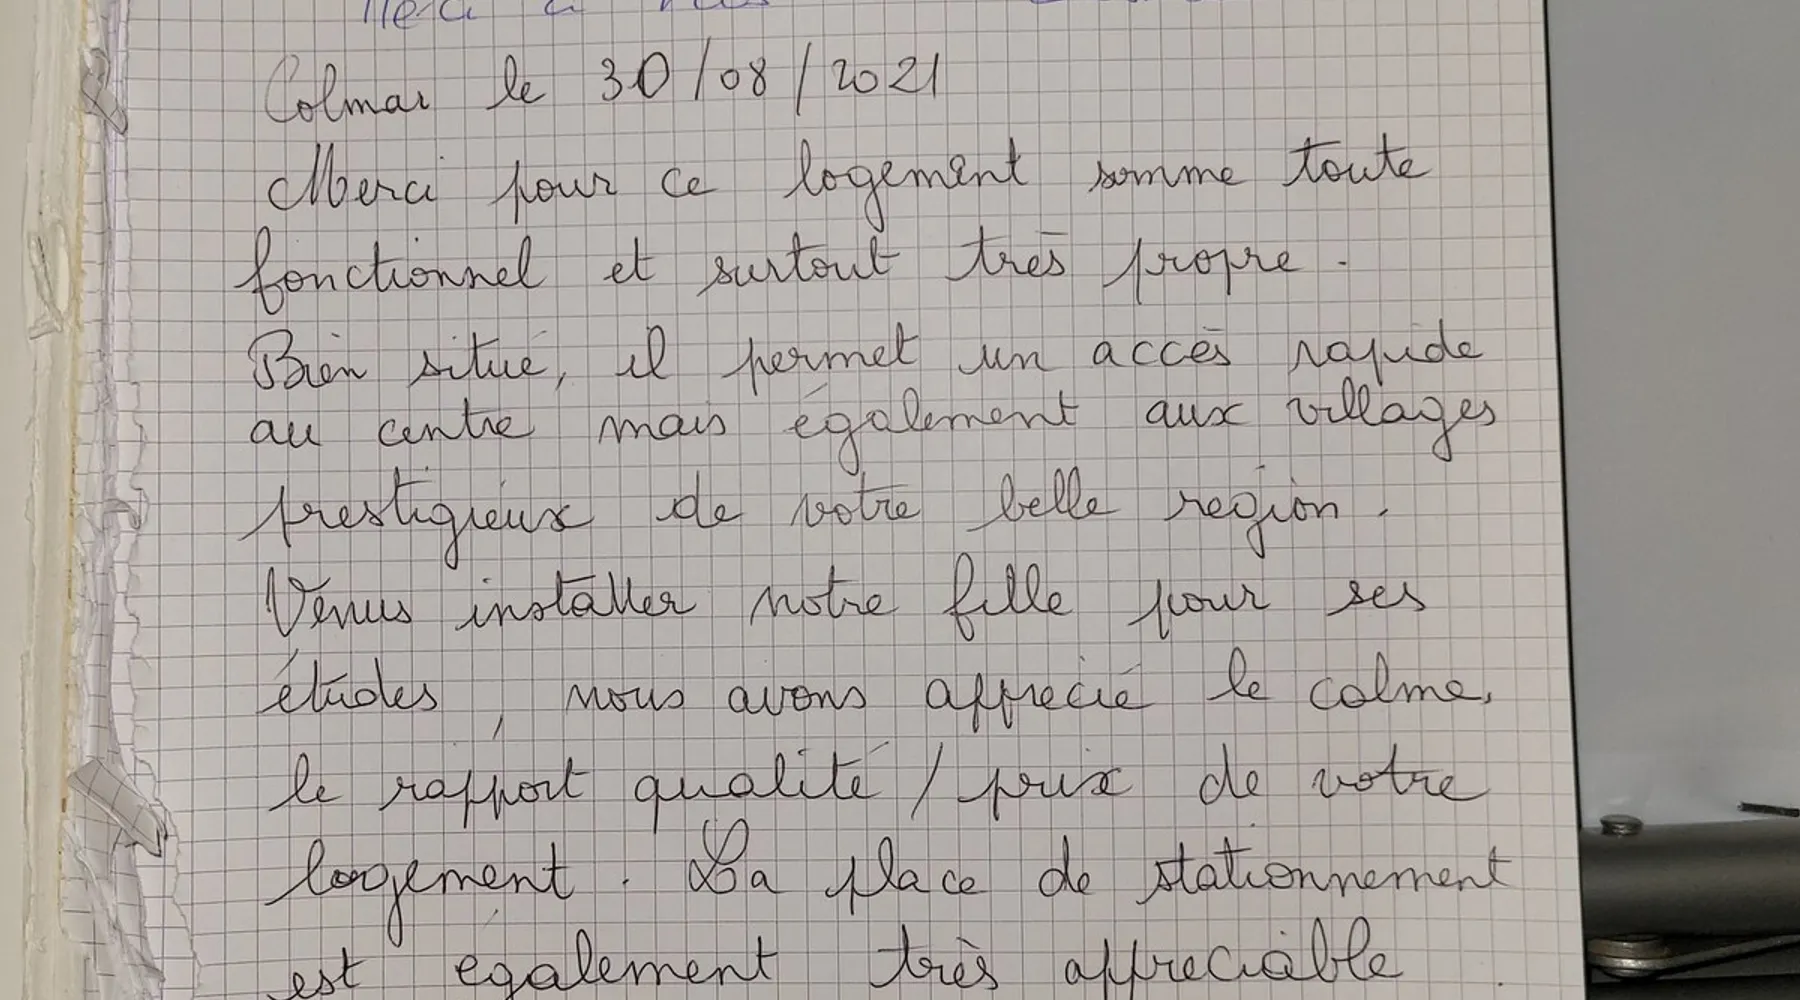 Colmar le 30/08/2021
Merci pour ce logement somme toute
fonctionnel et surtout très propre.
Bien situé, il permet un accès rapide
au centre mais également aux villages
prestigieux de votre belle region.
Venus installer notre fille pour ses
études, nous avons apprecié le calme,
le rapport qualité / prix de votre
logement. La place de stationnement
est également très appreciable